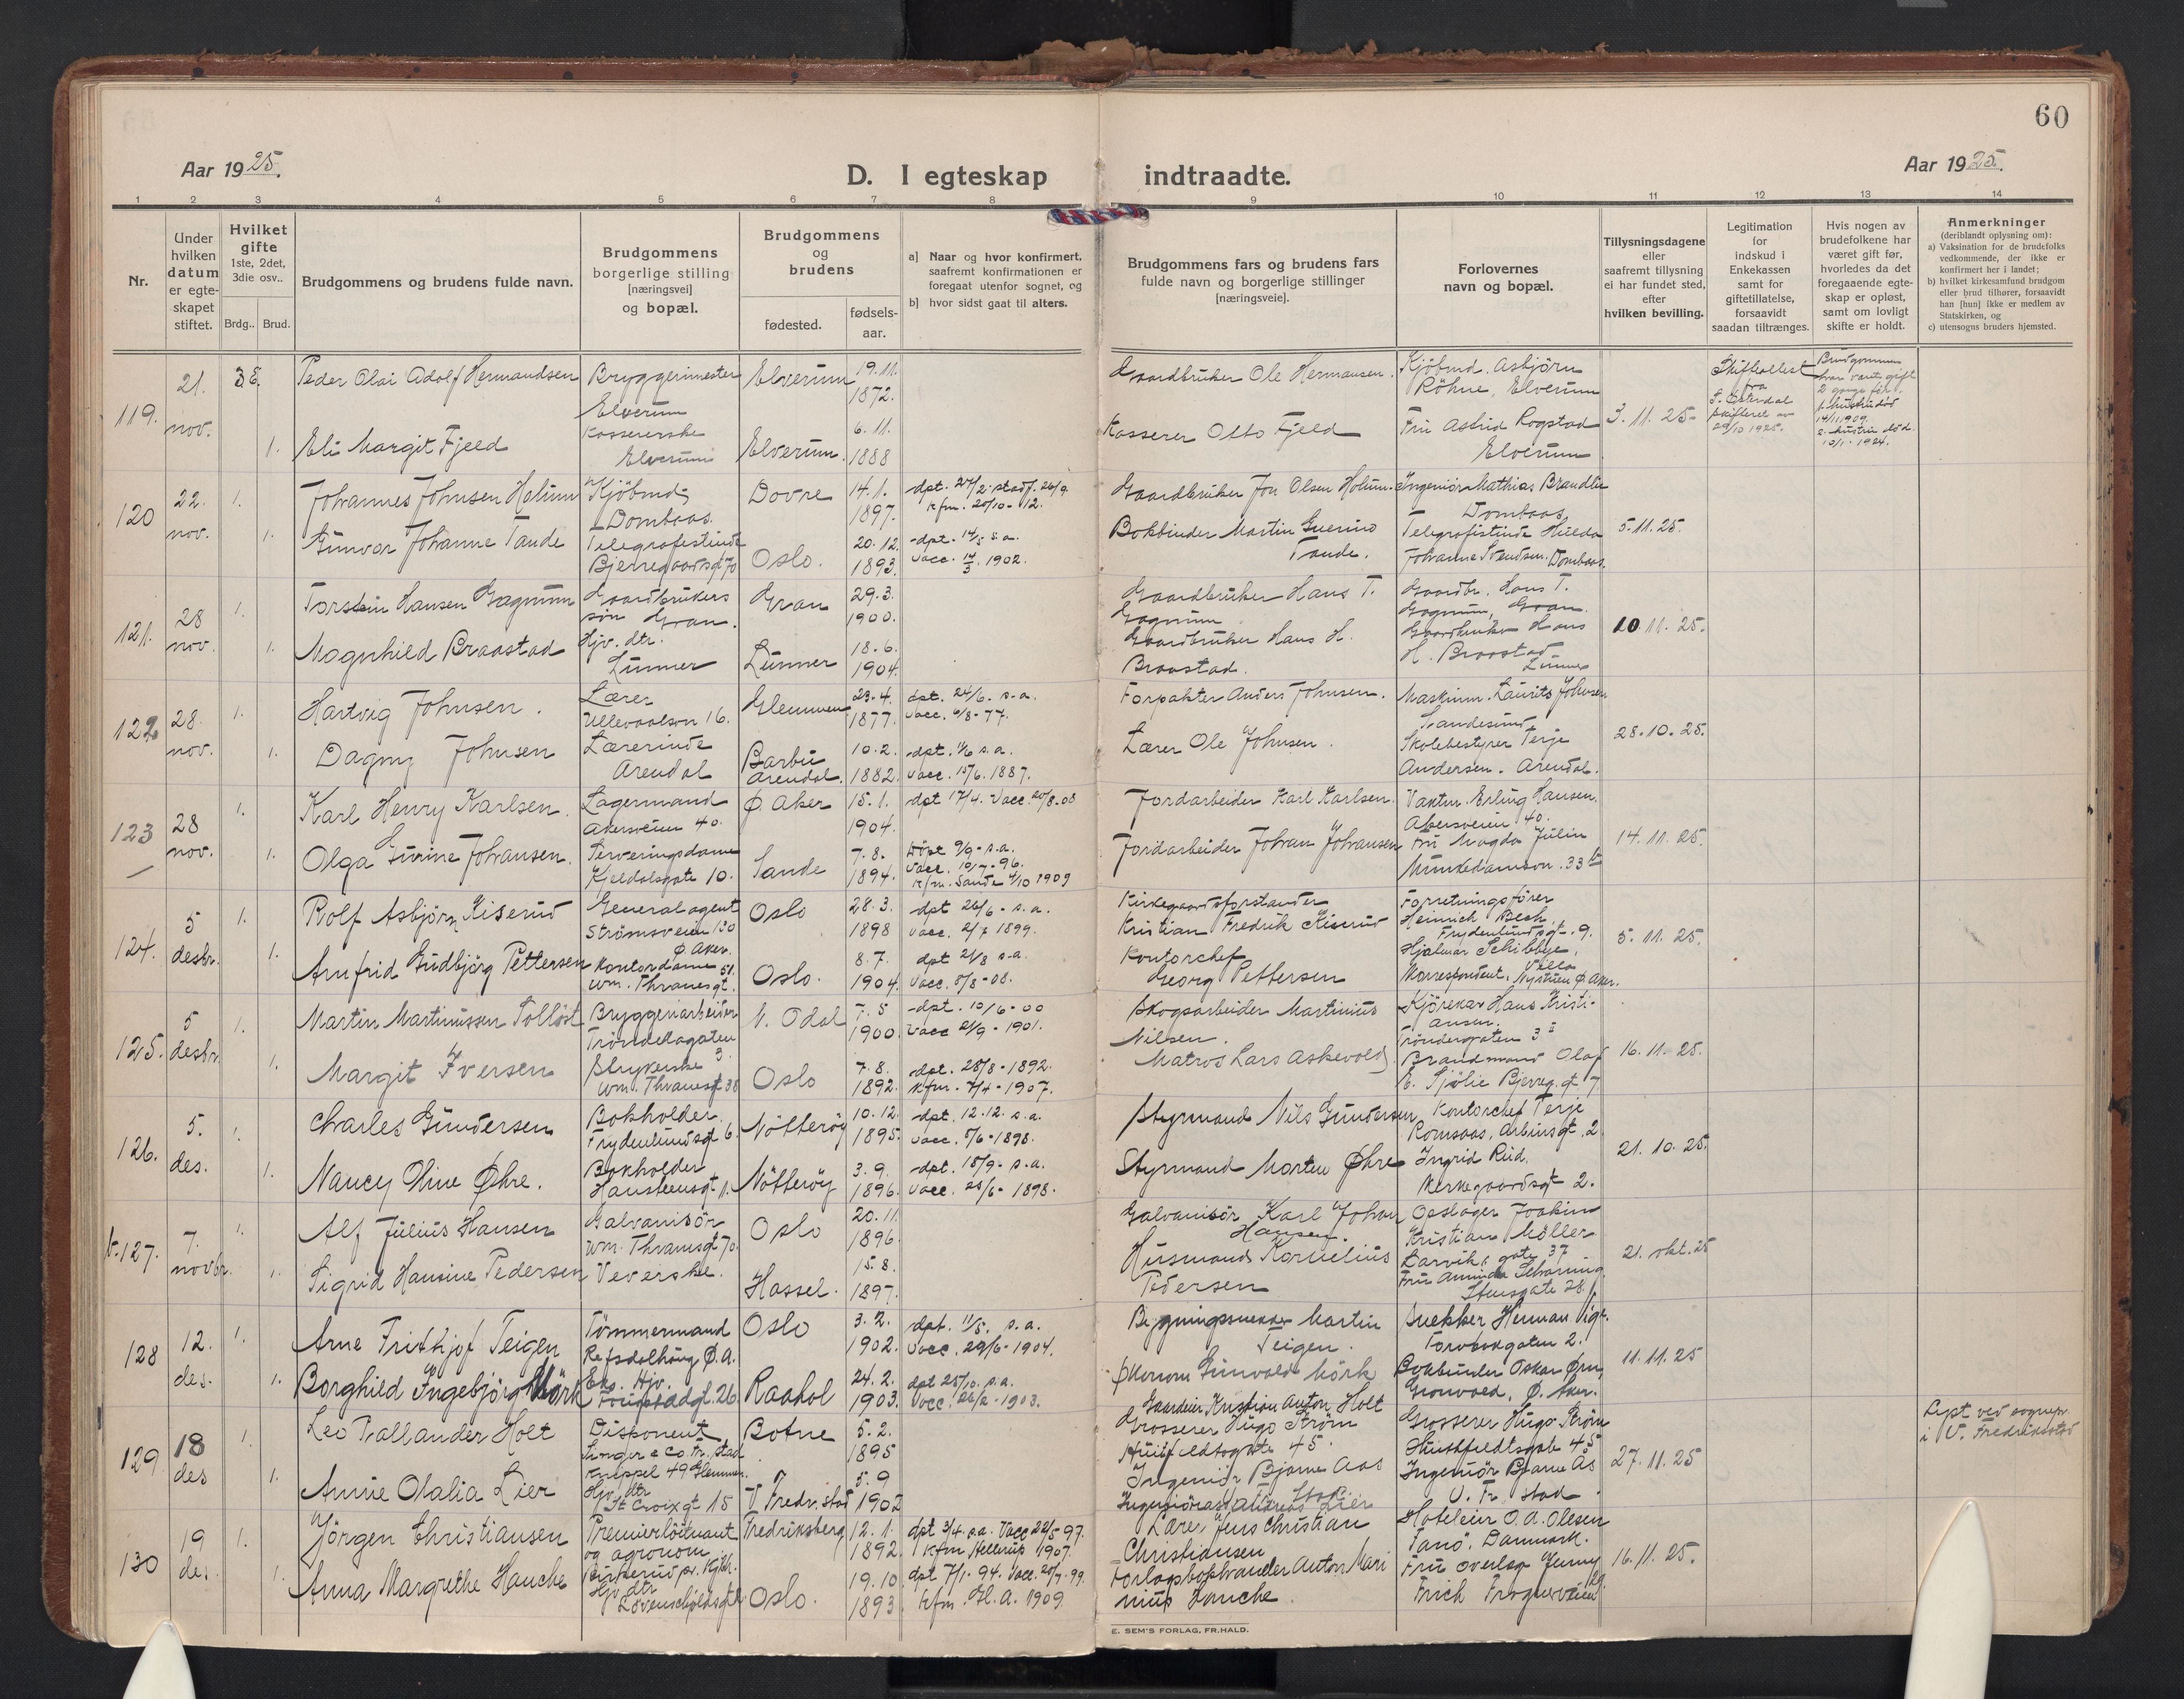 60
Aar 1925.
D. I egteskap indtraadte.
Aar 1925.
1 2 3 4 5 6 7 8 9 10 11 12 13 14
Nr.
Under hvilken datum er egteskapet stiftet.
Hvilket gifte 1ste, 2det, 3die osv..
Brdg.. Brud.
Brudgommens og brudens fulde navn.
Brudgommens borgerlige stilling [næringsvei] og bopæl.
Brudgommens og brudens
fødested.
fødsels-aar.
a] Naar og hvor konfirmert. saafremt konfirmationen er foregaat utenfor sognet, og
b] hvor sidst gaat til alters.
Brudgommens fars og brudens fars fulde navn og borgerlige stillinger [næringsveie].
Forlovernes navn og bopæl.
Tillysningsdagene eller saafremt tillysning ei har fundet sted, efter hvilken bevilling.
Legitimation for indskud i Enkekassen samt for giftetillatelse, forsaavidt saadan tiltrænges.
Hvis nogen av brudefolkene har været gift før, hvorledes da det foregaaende egteskap er opløst, samt om lovligt skifte er holdt.
Anmerkninger (deriblandt oplysning om):
a) Vaksination for de brudefolks vedkommende, der ikke er konfirmert her i landet;
b) hvilket kirkesamfund brudgom eller brud tilhører, forsaavidt han [hun] ikke er medlem av Statskirken, og
c) utensogns bruders hjemsted.
119. 21. nov. 3
Peder Olai Adolf Hermandsen Bryggerimester Elverum Elverum 19.11. 1872.
Gaardbruker Ole Hermansen. Kjöbmd. Asbjörn Röhne, Elverum
1. Eli Margit Fjeld Kassererske Elverum Elverum. 6.11. 1888
Kasserer Otto Fjeld Fru Astrid Rogstad Elverum
3.11.25.
Skifteattest fra S. Österdal skifteret av 29/10 1925.
Brudgommen har været gift 2 gange för. 1. hustru död 14/11 1909. 2. hustru död 10/1-1924.
120 22. nov. 1.
Johannes Johnsen Holum Kjöbmd. Dombaas. Dovre 14.1. 1897. kfm. 20/10-12.
Gaardbruker Jon Olsen Holum. Ingeniör Mathias Brandlie Dombaas
1. Gunvor Johanne Tande Telegrafistinde Bjerregaardsgt 70 Oslo. 20.12. 1893. dpt. 14/5 s.a. vacc. 14/3. 1902.
Bokbinder Martin Guerino Tande. Telegrafistinde Hilda Johanne Svendsen. Dombaas.
5.11.25.
121. 28 nov. 1.
Torstein Hansen Gagnum Gaardbrukers sön Gran. Gran 29.3. 1900.
Gaardbruker Hans T. Gagnum Gaardbr. Hans T. Gagnum, Gran.
1. Magnhild Braastad Hjv. dtr. Lunner Lunner 18.6. 1904.
Gaardbruker Hans H. Braastad. Gaardbruker Hans H. Braastad Lunner
10.11.25.
122 28. nov. 1.
Hartvig Johnsen. Lærer Ullevaalsvn 16. Glemmen 23.4. 1877. dpt. 24/6. s.a. vacc. 6/8-77.
Forpakter Anders Johnsen. Maskinm. Laurits Johnsen Sandesund
1. Dagny Johnsen Lærerinde Arendal Barbu Arendal. 10.2. 1882. dpt. 1/6 s.a. vacc. 15/6. 1887.
Lærer Ole Johnsen. Skolebestyrer Terje Andersen. Arendal.
28.10.25.
123 28 nov. 1.
Karl Henry Karlsen. Lagermand Akersveien 40. Ø. Aker 15.1. 1904. dpt 17/4. Vacc. 20/8.08
Jordarbeider Karl Karlsen. Vaktm. Erling Hansen. Akersveien 40.
1. Olga Gurine Johansen. Serveringsdame Kjeldsisgate 10. Sande 7.8. 1894. Döpt 9/9-s.a. Vacc. 10/7-96. Kfm. Sande 4/10 1909
Jordarbeider Johan Johansen Fru Magda Julin Munkedamsvn. 33 b
14.11.25.
124. 5 desbr. 1.
Rolf Asbjörn Kiserud Generalagent Strömsveien 130 Ø Aker. Oslo 28.3. 1898 dpt 26/6-s.a. vacc. 2/7 1899.
Kirkegaardsforstander Kristian Fredrik Kiserud Forretningsförer Heinrich Besh Frydenlundsgt. 9.
1. Arnfrid Gudbjörg Pettersen Kontordame Wm. Thranesgt. 51. Oslo. 8.7. 1904. dpt 21/8 s.a. Vacc. 5/8-08.
Kontorchef Georg Pettersen Hjalmar Schibbye, Korrespondent, Villa Nystuen Ø. Aker.
5.11.25.
125. 5 desbr. 1.
Martin Martinussen Tollöst Bryggeriarbeider Tröndelagaten 3. N. Odal 7.5 1900. dpt. 10/6-00 vacc 2/9-1901.
Skogsarbeider Martinius Nilsen. Kjörekar Hans Kristiansen. Tröndergaten 3
1. Margit Iversen Strykerske Wm. Thranesgt 38 Oslo 7.8. 1892. dpt. 28/8-1892. Kfm. 7/4-1907.
Matros Lars Askevold Brandmand Olaf E. Sjölie Bjerreg. gt. 7
16.11.25.
126. 5. des. 1.
Charles Gundersen Bokholder Frydenlundsgt 6. Nötteröy 10.12. 1895. dpt. 12.12. s.a. vacc. 5/6-1898.
Styrmand Nils Gundersen Kontorchef Terje Romsaas, Arbinsgt. 2.
1. Nancy Oline Øhre. Bokholder Hansteensgt. 1. Nötteröy 3.9. 1896. dpt. 15/9. s.a. vacc. 25/6-1898.
Styrmand Morten Øhre Ingrid Rud. Kirkegaardsgt 2.
21.10.25.
127. 7. novbr. 1.
Alf Julius Hansen Galvanisör Wm. Thranesgt. 70. Oslo 20.11. 1896.
Galvanisör Karl Johan Hansen. Opslager Joakim Kristian Möller Larviksgate 37
1. Sigrid Hansine Pedersen Veverske. Hassel. 15.8. 1897.
Husmand Kornelius Pedersen Fru Aminda Scharning. Stensgate 28.
21. okt. 25
128 12. des. 1.
Arne Fridtjof Teigen Tömmermand Refsdalhaug, Ø.A. Oslo 3.2. 1902. dpt. 11/5. s.a. Vacc. 29/6-1904.
Bygningssnekker Martin Teigen. Snekker Herman Torvbakgaten 2.
1. Borghild Ingebjörg Mörk Eks. Hjv. Raahol 24.2. 1903. dpt 25/10. s.a. Vacc. 26/2-1903.
Økonom Gunvald Mörk Bokbinder Oskar Ørn Gronvold, Ø. Aker.
11.11.25
129 18 des 1.
Leo Tallander Holt Disponent Singer & Co. Fr. stad Knippel 49 Glemmen. Botne 5.2. 1895
Gaardeier Kristian Anton Holt Grosserer Hugo Ström Huitfeldtsgate 45. Grosserer Hugo Ström Huitfeldtsgate 45
1. Annie Otalia Lier Hjv. dtr St. Croix gt 15 V. Fredr.stad 5.9 1902
Ingeniör Bjarne Aas Ingeniör Bjarne Ås V. Fr. stad.
27.11.25
Lyst ved sognepr. i V. Fredrikstad
130 19 des. 1.
Jörgen Christiansen Premierlöitnant og agronom Birkeröd pr. Kjbh. Fredriksberg 12.1. 1892. dpt 3/4. s.a. Vacc 22/5 97. Kfm Hellerup 1907.
Lærer Jens Christian Christiansen Hoteleier O.A. Olesen Fanö, Danmark.
1. Anna Margrethe Hauche Hjv. dtr Lövenskioldsgt Oslo. 19.10. 1893. dpt 7/1-94. Vacc. 21/9.99. kfm. Gl. A. 1909.
Forlagsboghandler Anton Marinius Hauche. Fru overlæge Jenny Frich Frognerveien
16.11.25.
E. SEM'S FORLAG, FR.HALD.